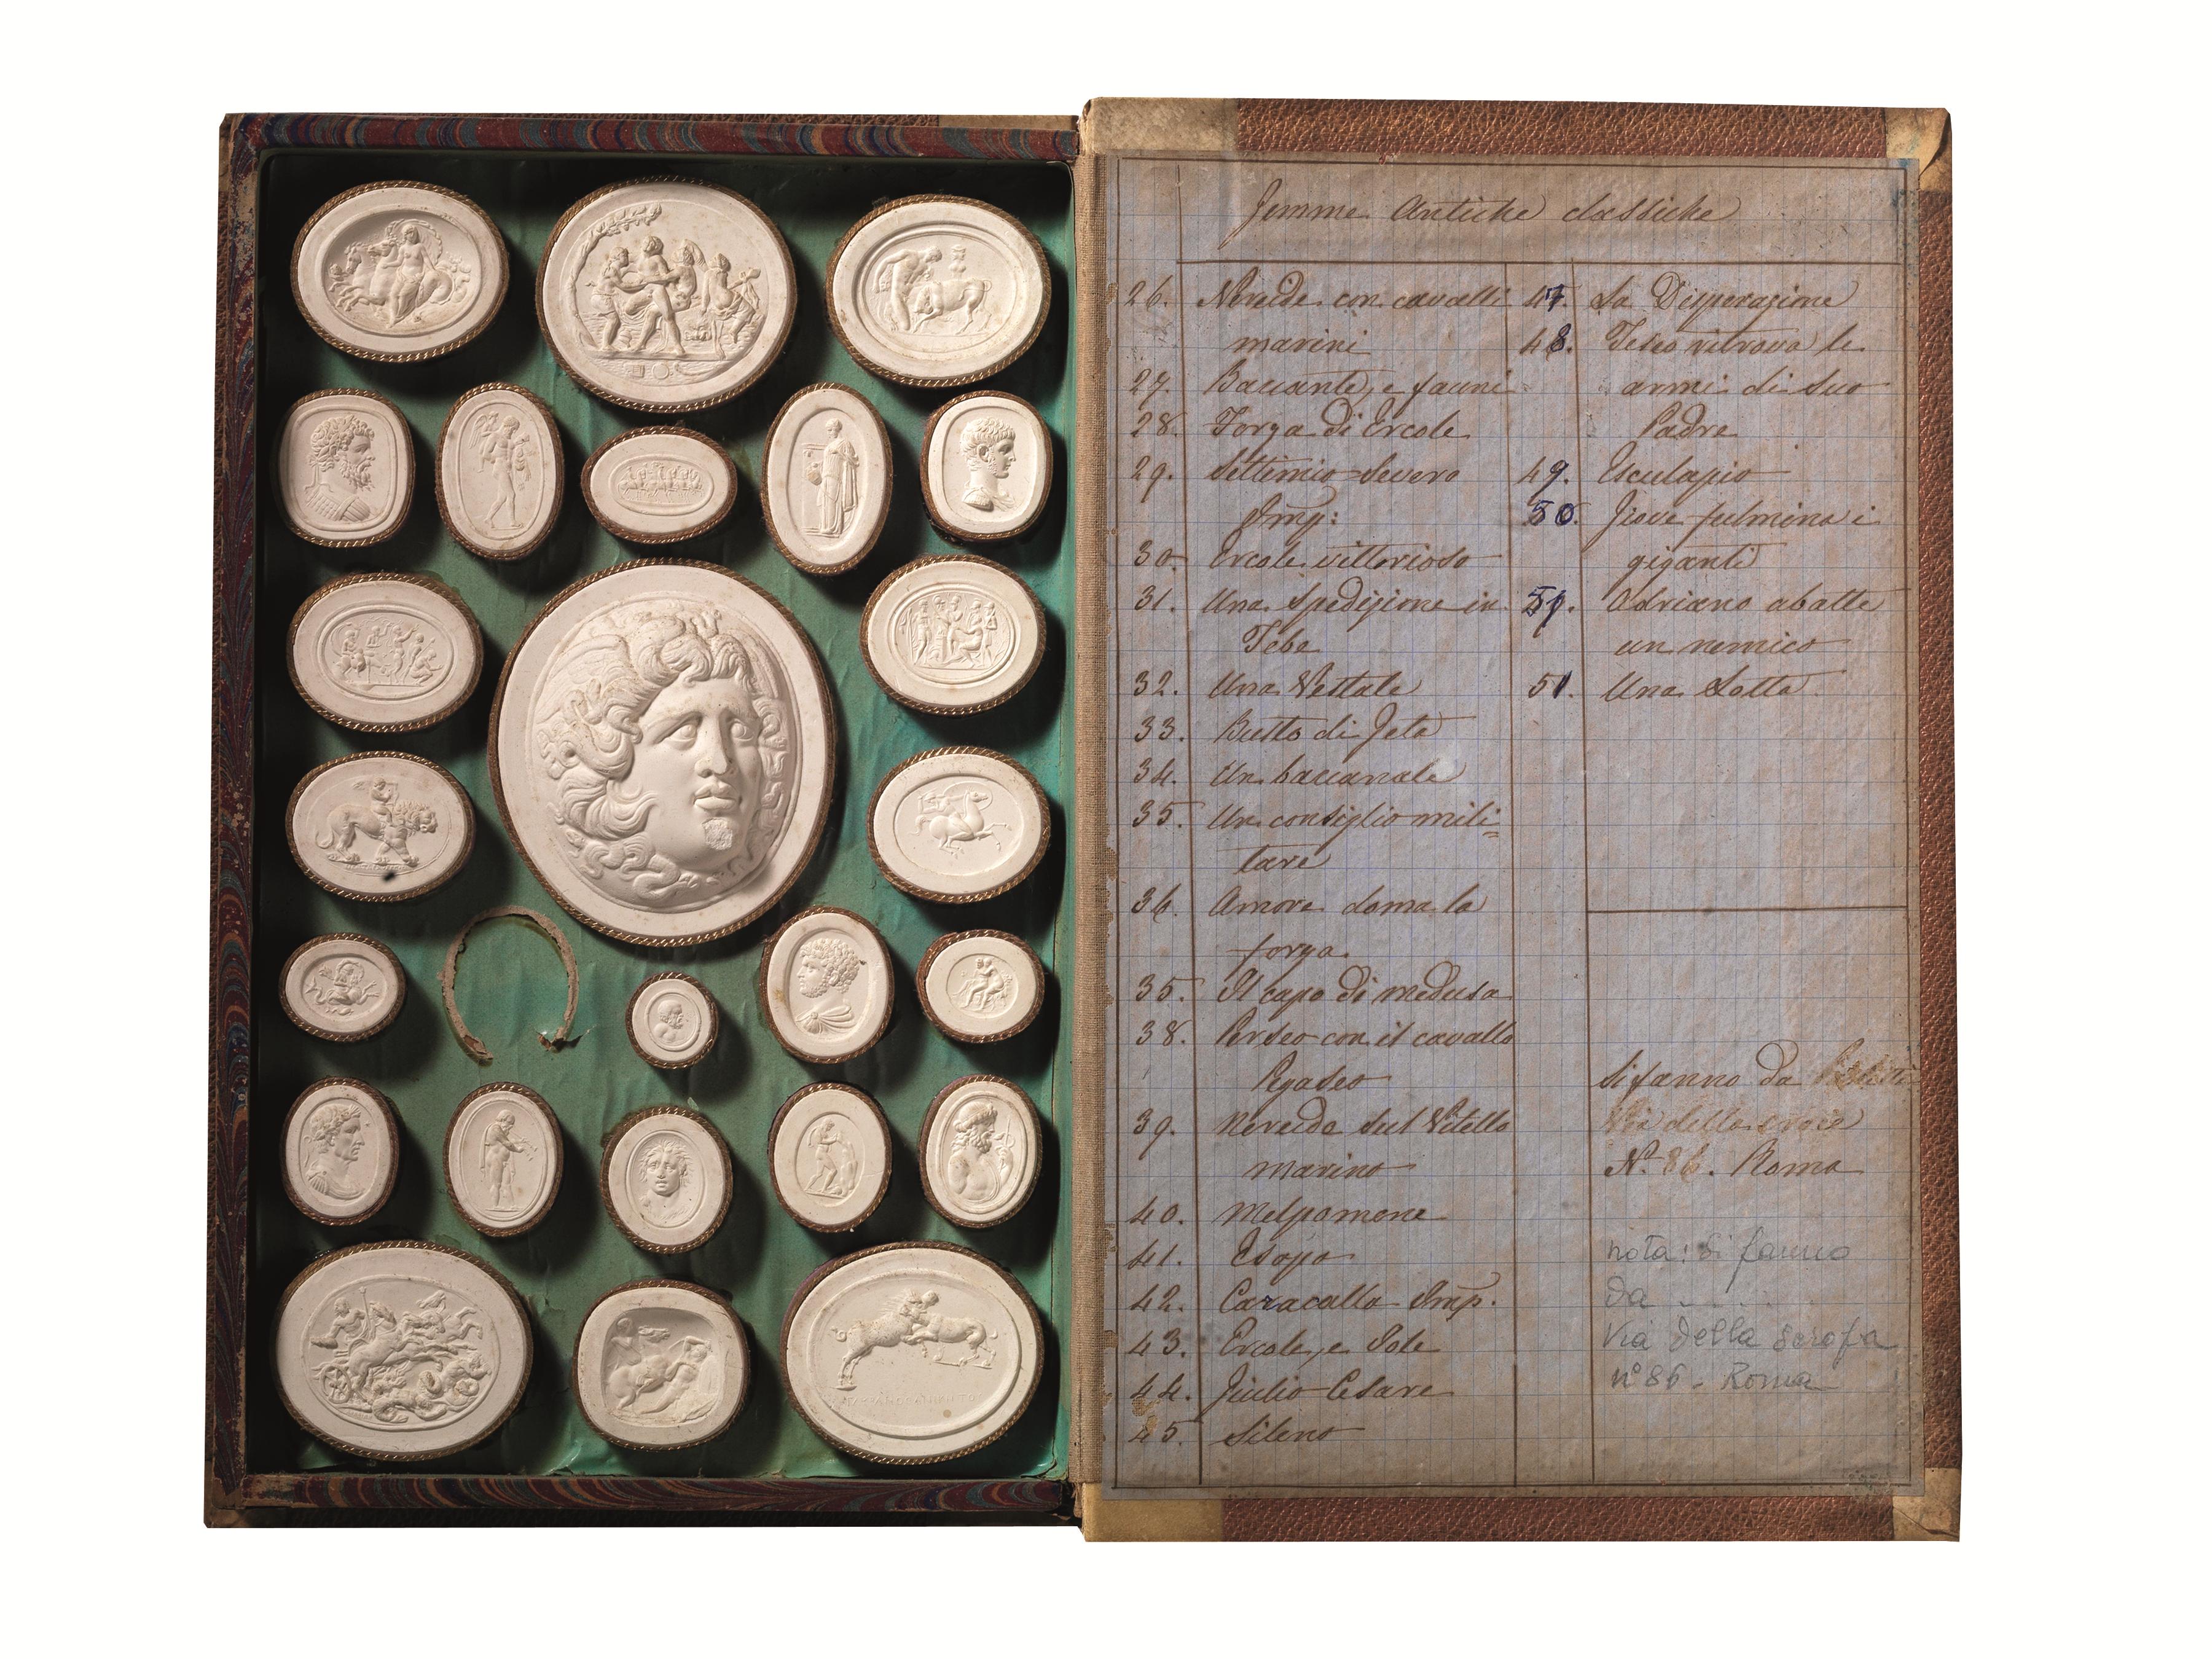 Gemme Antiche classiche
26. Nereide con cavalli
marini
27. Baccanti, e fauni
28. Forza di Ercole
29. Settimio Severo
Imp:
30. Ercole vittorioso
31. Una Spedizione in
Tebe
32. Una Vestale
33. Busto di Geta
34. Un baccanale
35. Un consiglio mili=
tare
36. Amore doma la
forza
35. Il capo di medusa
38. Perseo con il cavallo
Pegaseo
39. Nereide sul Vitello
marino
40. Melpomene
41. Esopo
42. Caracalla Imp.
43. Ercole, e Iole
44. Giulio Cesare
45. Sileno
47. La Disperazione
48. Teseo ritrova le
armi di suo
Padre
49. Esculapio
50. Giove fulmina i
giganti
51. Adriano abatte
un nemico
51. Una Lotta
Si fanno da
Via della
N.º 86. Roma
nota: Si fanno
da .....
Via della Scrofa
nº 86 - Roma